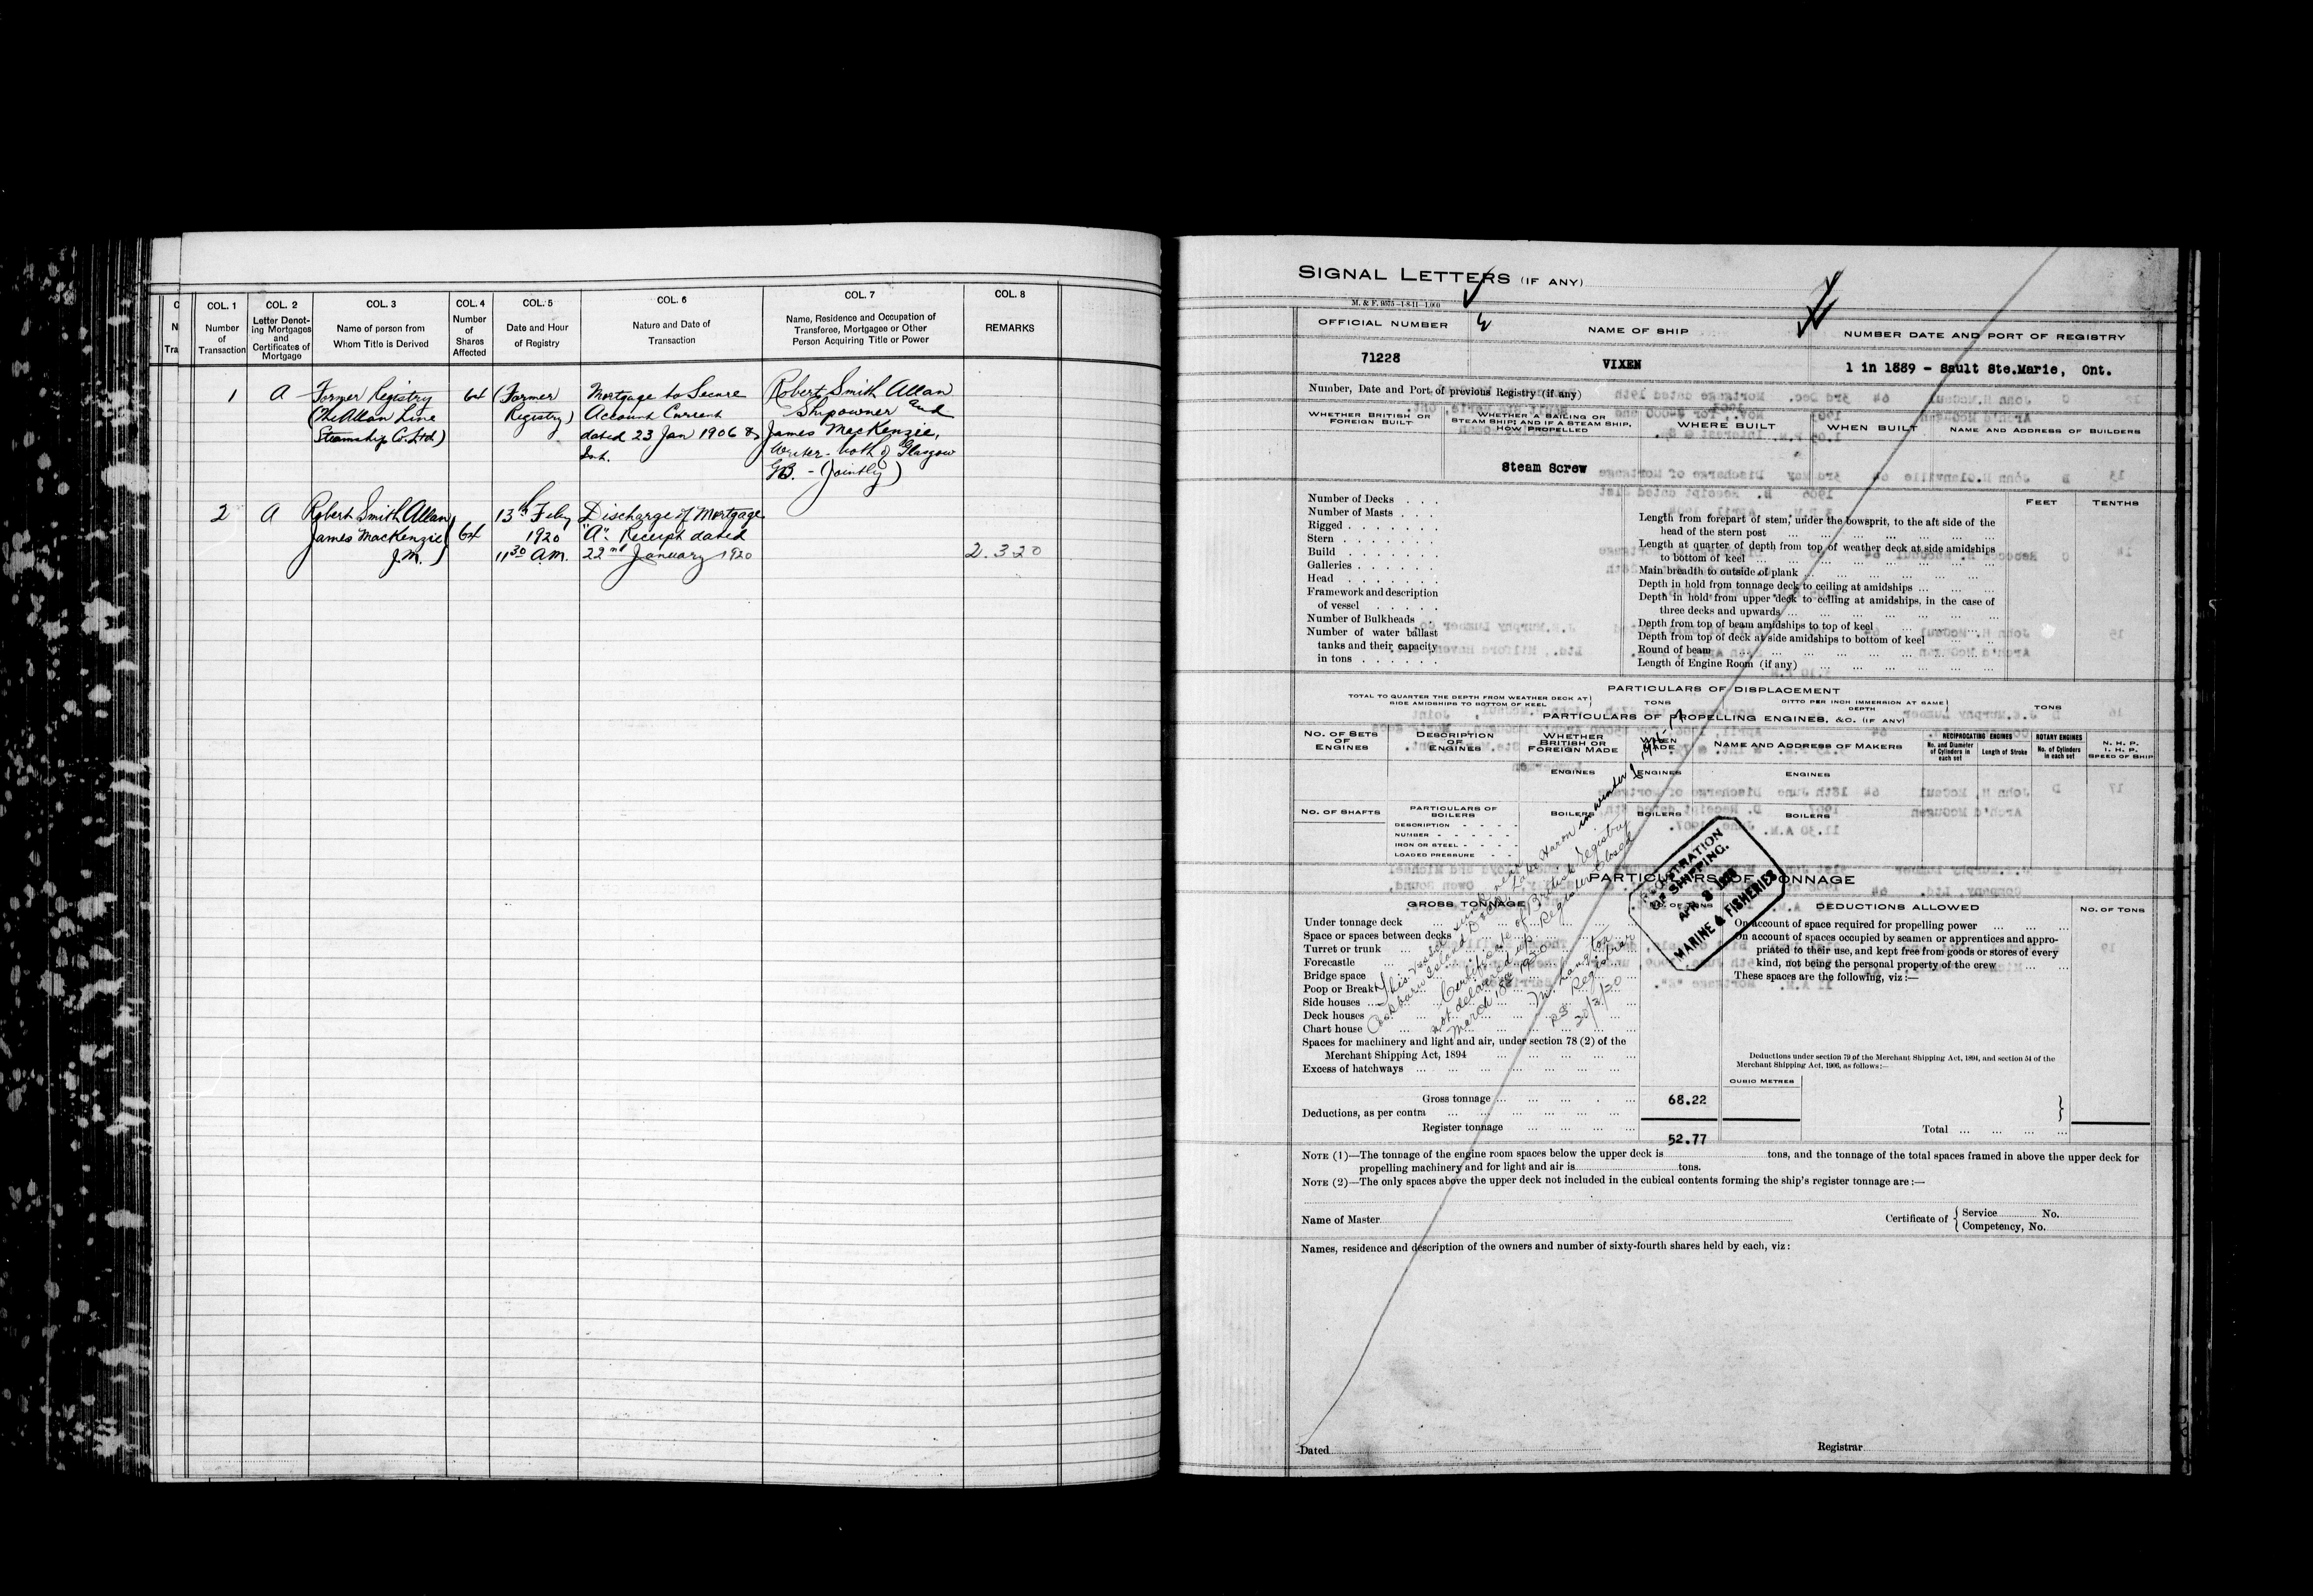 COL. 1
Number
of
Transaction
COL. 2
Letter Denot-
ing Mortgages
and
Certificates of
Mortgage
COL. 3
Name of person from
Whom Title is Derived
COL. 4
Number
of
Shares
Affected
COL. 5
Date and Hour
of Registry
COL. 6
Nature and Date of
Transaction
COL. 7
Name, Residence and Occupation of
Transferee, Mortgagee or Other
Person Acquiring Title or Power
COL. 8
REMARKS
1
A
Former Registry
(The Allan Line
Steamship Co. Ltd)
64
(Former
Registry)
Mortgage to Secure
Account Current
dated 23 Jan 1906 &
Int.
Robert Smith Allan
Shipowner and
James MacKenzie,
Writer - both of Glasgow
G.B. - (Jointly)
2
A
Robert Smith Allan
James MacKenzie
J.M.
64
13th Feby
1920
11 30 A.M.
Discharge of Mortgage
"A". Receipt dated
22nd January 1920
2.320
SIGNAL LETTERS (IF ANY)
M. & F. 9375-1-8-11-1,000
OFFICIAL NUMBER
NAME OF SHIP
NUMBER DATE AND PORT OF REGISTRY
71228
VIXEN
1 in 1889 - Sault Ste.Marie, Ont.
Number, Date and Port of previous Registry (if any)
WHETHER BRITISH OR
FOREIGN BUILT
WHETHER A SAILING OR
STEAM SHIP; AND IF A STEAM SHIP,
HOW PROPELLED
WHERE BUILT
WHEN BUILT
NAME AND ADDRESS OF BUILDERS
Steam Screw
FEET
TENTHS
Number of Decks
Number of Masts
Rigged
Stern
Build
Galleries
Head
Framework and description
of vessel
Number of Bulkheads
Number of water ballast
tanks and their capacity
in tons
Length from forepart of stem, under the bowsprit, to the aft side of the
head of the stern post
Length at quarter of depth from top of weather deck at side amidships
to bottom of keel
Main breadth to outside of plank
Depth in hold from tonnage deck to ceiling at amidships
Depth in hold from upper deck to ceiling at amidships, in the case of
three decks and upwards
Depth from top of beam amidships to top of keel
Depth from top of deck at side amidships to bottom of keel
Round of beam
Length of Engine Room (if any)
PARTICULARS OF DISPLACEMENT
TOTAL TO QUARTER THE DEPTH FROM WEATHER DECK AT
SIDE AMIDSHIPS TO BOTTOM OF KEEL
TONS
DITTO PER INCH IMMERSION AT SAME
DEPTH
TONS
PARTICULARS OF PROPELLING ENGINES, &C. (IF ANY)
NO. OF SETS
OF
ENGINES
DESCRIPTION
OF
ENGINES
WHETHER
BRITISH OR
FOREIGN MADE
WHEN
MADE
NAME AND ADDRESS OF MAKERS
RECIPROCATING ENGINES
No. and Diameter
of Cylinders in
each set
Length of Stroke
ROTARY ENGINES
No. of Cylinders
in each set
N. H. P.
I. H. P.
SPEED OF SHIP
ENGINES
ENGINES
ENGINES
NO. OF SHAFTS
PARTICULARS OF
BOILERS
BOILERS
BOILERS
BOILERS
DESCRIPTION
NUMBER
IRON OR STEEL
LOADED PRESSURE
This vessel sunk near
Cockburn Island Dist. Lake Huron in winter of
Certificate of British Registry
not delivered up. Register closed
March 18th 1920
M. Langton
RS. Registrar
20/3/20
REGISTRATION
OF SHIPPING.
APR 3 1920
MARINE & FISHERIES
PARTICULARS OF TONNAGE
GROSS TONNAGE
NO. OF TONS
DEDUCTIONS ALLOWED
NO. OF TONS
Under tonnage deck
Space or spaces between decks
Turret or trunk
Forecastle
Bridge space
Poop or Break
Side houses
Deck houses
Chart house
Spaces for machinery and light and air, under section 78 (2) of the
Merchant Shipping Act, 1894
Excess of hatchways
On account of space required for propelling power
On account of spaces occupied by seamen or apprentices and appro-
priated to their use, and kept free from goods or stores of every
kind, not being the personal property of the crew
These spaces are the following, viz:—
Deductions under section 79 of the Merchant Shipping Act, 1894, and section 54 of the
Merchant Shipping Act, 1906, as follows:—
CUBIC METRES
Gross tonnage
68.22
Deductions, as per contra
Register tonnage
52.77
Total
NOTE (1)—The tonnage of the engine room spaces below the upper deck is tons, and the tonnage of the total spaces framed in above the upper deck for
propelling machinery and for light and air is tons.
NOTE (2)—The only spaces above the upper deck not included in the cubical contents forming the ship's register tonnage are:—
Name of Master
Certificate of
Service No.
Competency, No.
Names, residence and description of the owners and number of sixty-fourth shares held by each, viz:
Dated
Registrar